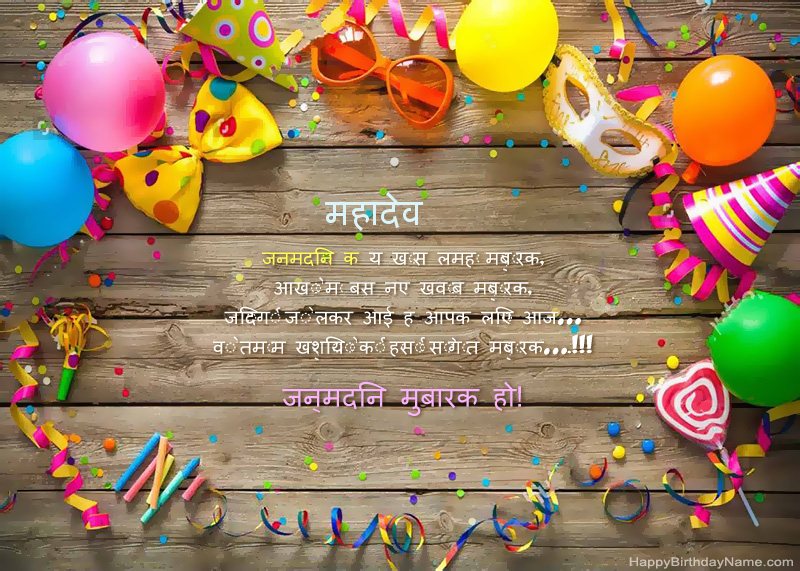 महादेव
जनमदिन क य ख ास लमह मब ारक,
आख ो म बस नए खव ाब मब ारक,
जिदग ी ज ो लकर आई ह आपक लिए आज...
व ो तमाम खश ियो क ी हस ी स ौग ात मब ारक...!!!
जन्मदिन मुबारक हो!
HappyBirthdayName.com